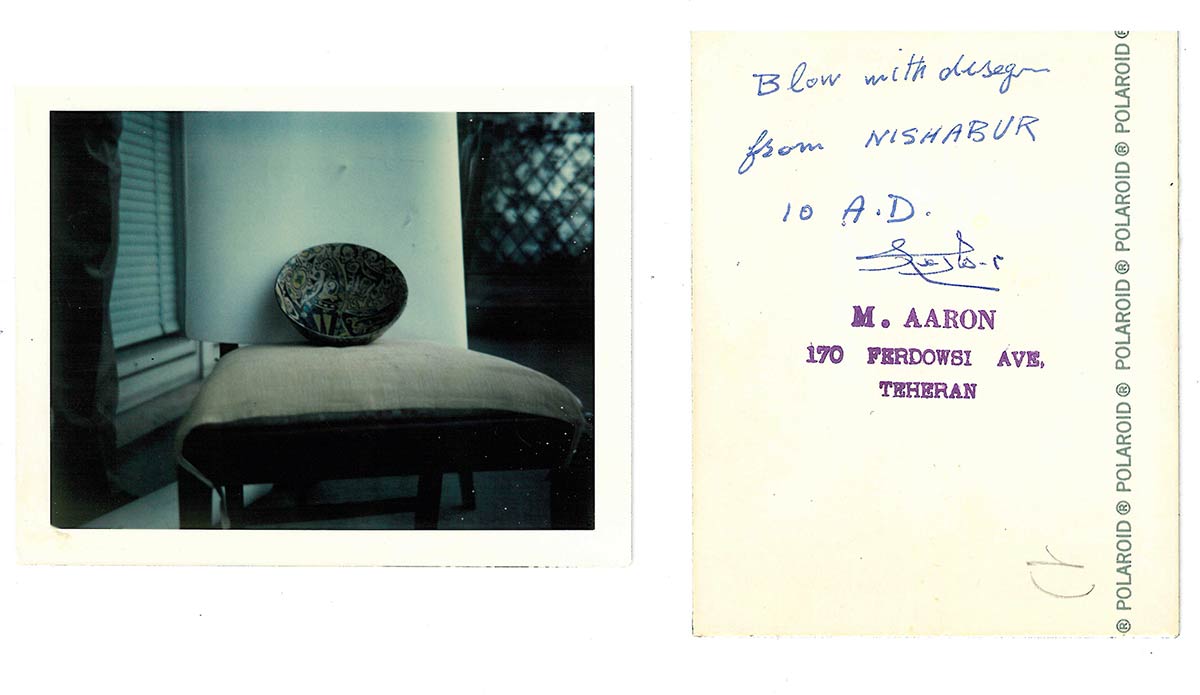 Blow with desegn
from NISHABUR
10 A.D.
M. AARON
170 FERDOWSI AVE,
TEHERAN
® POLAROID ® POLAROID ® POLAROID ® POLAROID ® POLAROID ® POLAROID ®